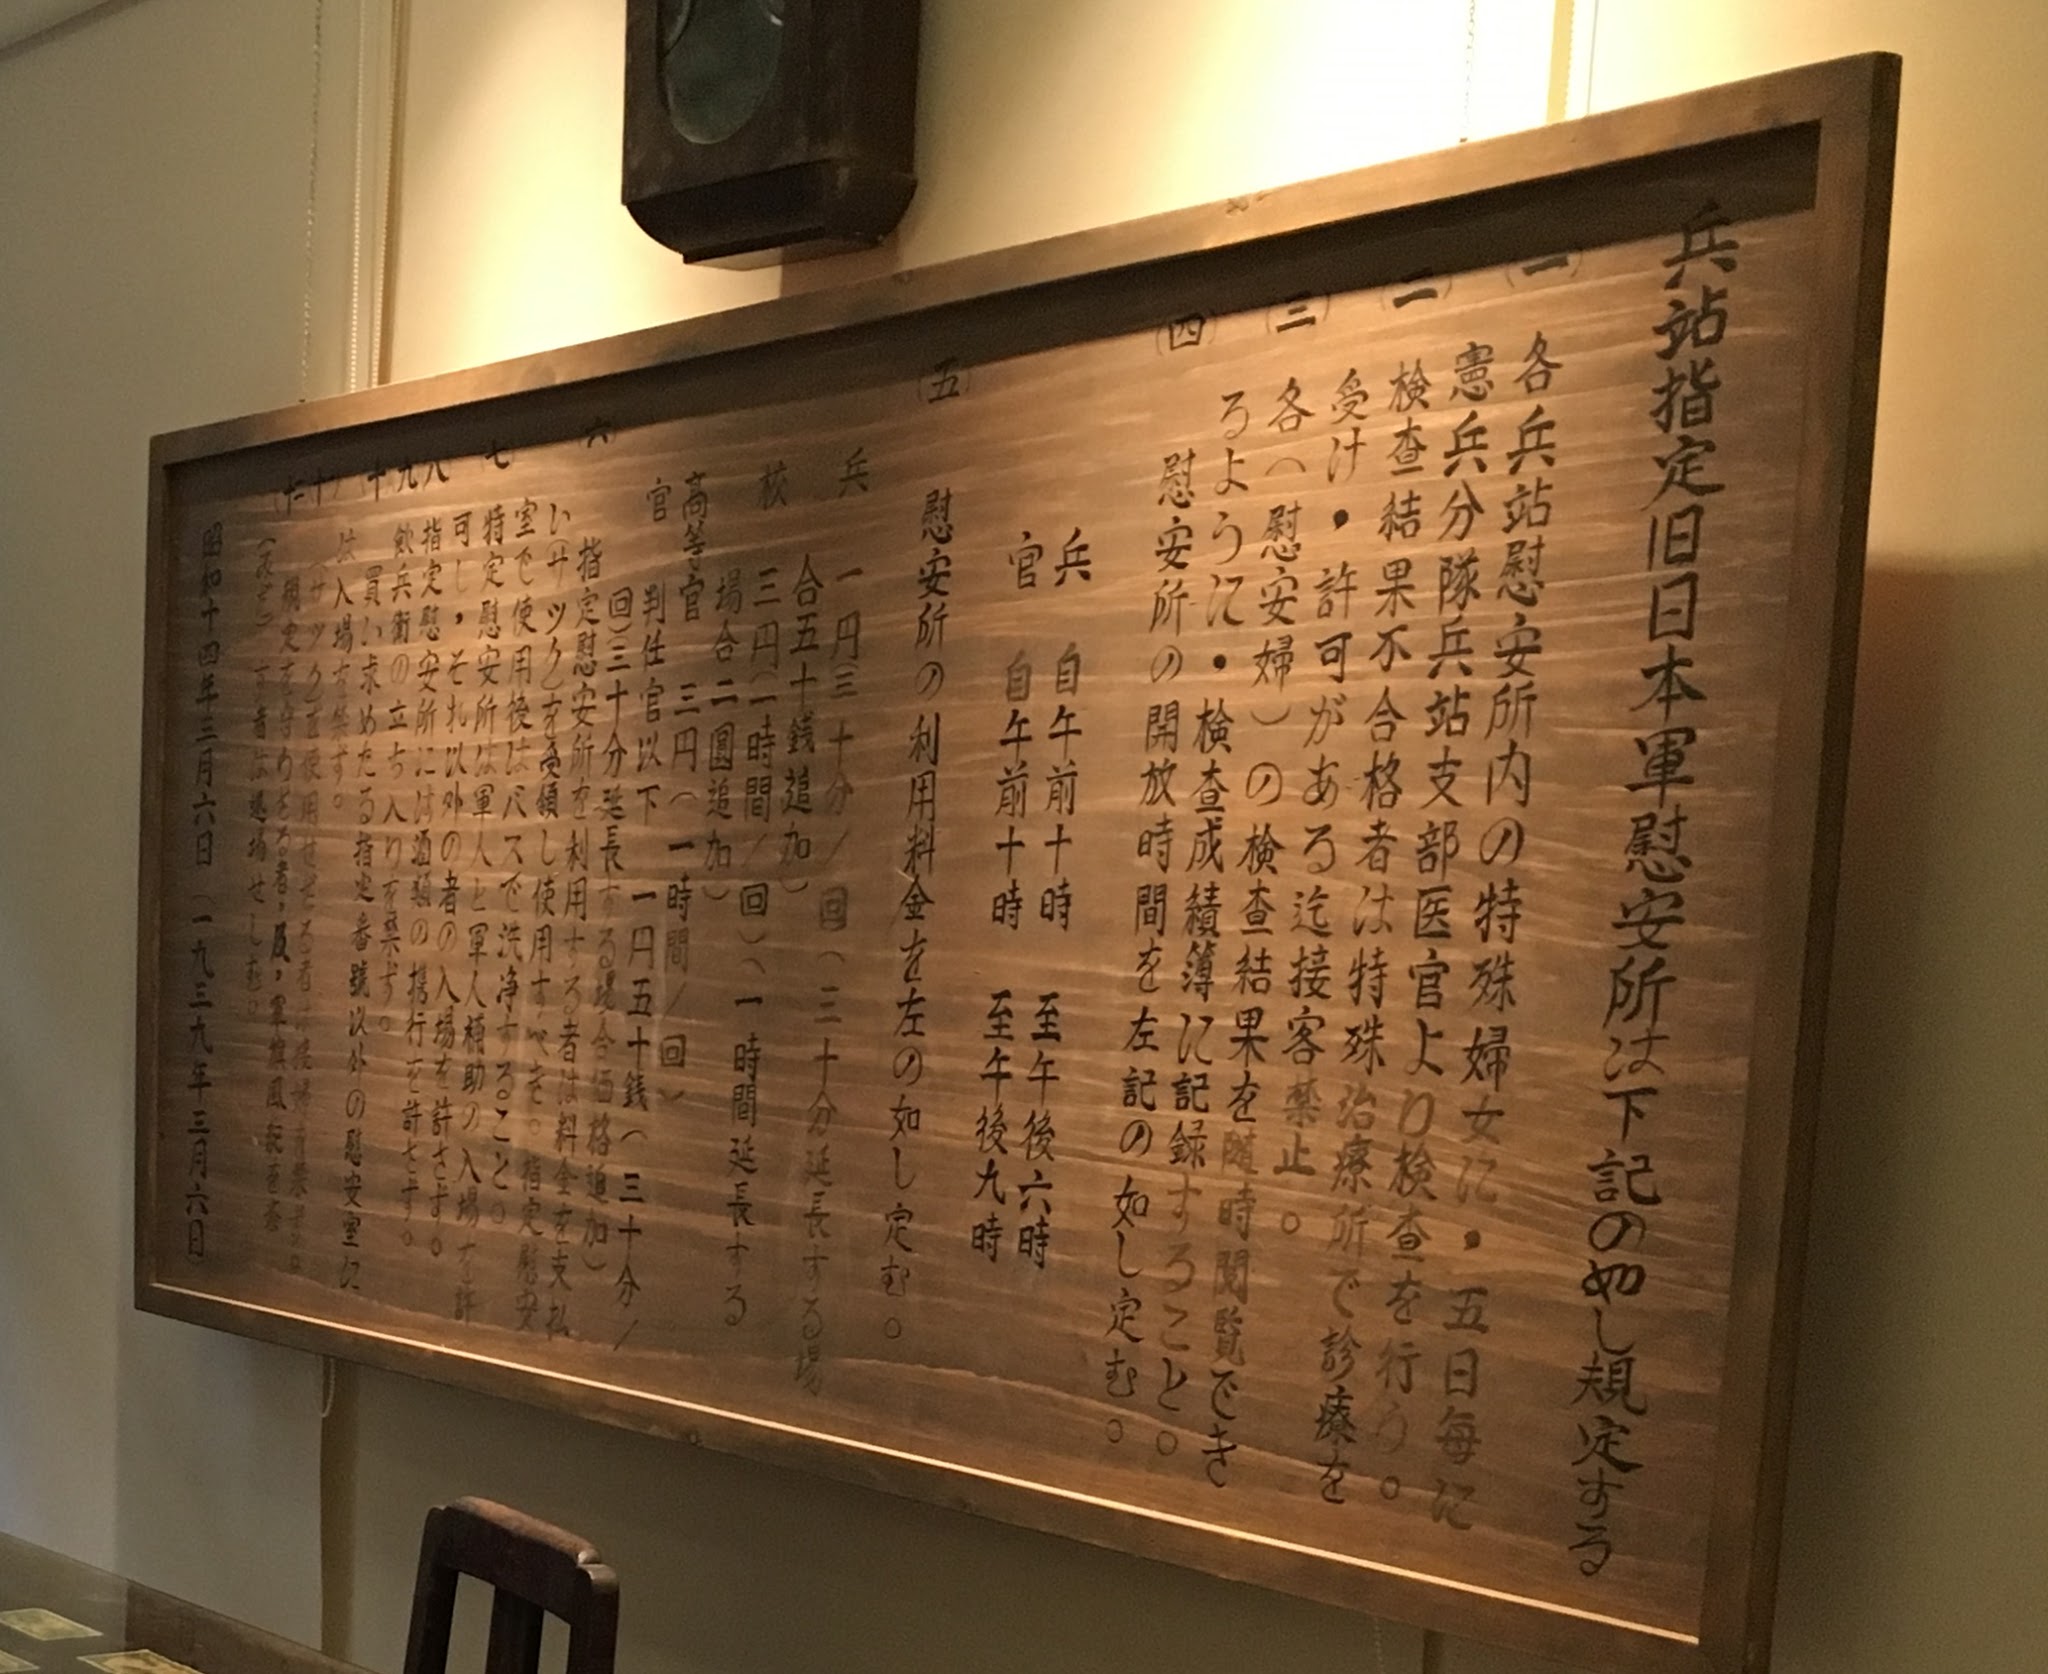 兵站指定旧日本軍慰安所は下記の如し規定する
(一) 各兵站慰安所内の特殊婦女に・五日毎に
憲兵分隊兵站支部医官より検査を行う。
(二) 検査結果不合格者は特殊治療所で診療を
受け・許可がある迄接客禁止。
(三) 各(慰安婦)の検査結果を随時閲覧でき
るように・検査成績簿に記録すること。
(四) 慰安所の開放時間を左記の如し定む。
兵 自午前十時 至午後六時
官 自午前十時 至午後九時
(五) 慰安所の利用料金を左の如し定む。
兵 一円(三十分/回(三十分延長する場
合五十銭追加)
校 三円(一時間/回)(一時間延長する
場合二圓追加)
高等官 三円(一時間/回)
官 判任官以下 一円五十銭(三十分/
回)三十分延長する場合価格追加)
六 指定慰安所を利用する者は料金を支払
い(サック)を受領し使用すべき。指定慰安
室で使用後はバスで洗浄すること。
七 特定慰安所は軍人と軍人補助の入場を許
可し,それ以外の者の入場を許さず。
八 指定慰安所には酒類の携行を許さず。
九 飲兵衛の立ち入りを禁ず。
十 買い求めたる指定番號以外の慰安室に
は入場を禁ず。
昭和十四年三月六日(一九三九年三月六日)